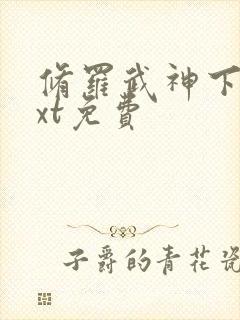 脩羅武神下
xt免費
子爵的青花瓷